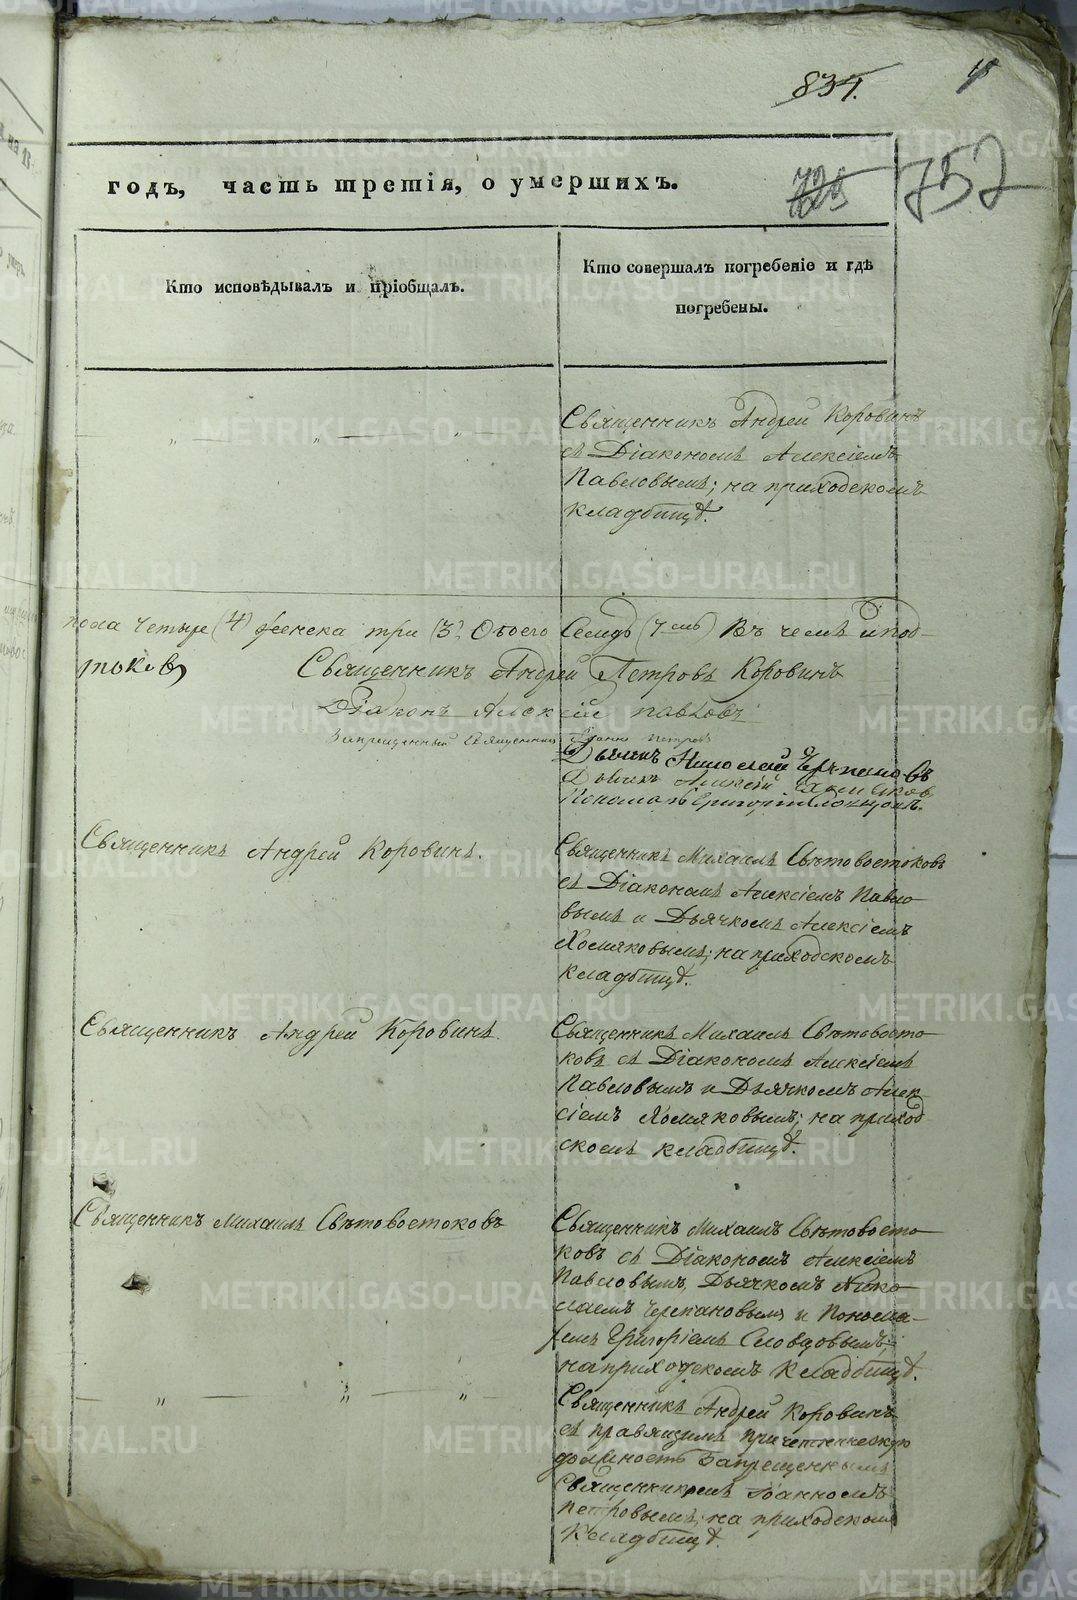 834.
752
годъ, часть третія, о умершихъ.
Кто исповѣдывалъ и пріобщалъ.
Кто совершалъ погребеніе и гдѣ
погребены.
Священникъ Андрей Коровинъ
съ Діакономъ Алексіемъ
Павловымъ; на приходскомъ
кладбищѣ.
пола четыре (4) женска три (3), Обоего Семдь (7 емь) Въ чемъ и под-
Священникъ Андрей Петровъ Коровинъ
Діаконъ Алексій Павловъ
Запрещенный Священникъ Іоаннъ Петровъ
Дьячикъ Николай Черпановъ
Дьячикъ Алексій Хомяков
Пономарь Григорій Словцовъ.
Священникъ Андрей Коровинъ.
Священникъ Михаилъ Свѣтовостоковъ
съ Діакономъ Алексіемъ Павло
вымъ и Дьячкомъ Алексіемъ
Хомяковымъ; на приходскомъ
кладбищѣ.
Священникъ Андрей Коровинъ.
Священникъ Михаилъ Свѣтовосто
ковъ съ Діакономъ Алексіемъ
Павловымъ и Дьячкомъ Алек-
сіемъ Хомяковымъ; на приход
скомъ кладбищѣ.
Священникъ Михаилъ Свѣтовостоковъ
Священникъ Михаилъ Свѣтовосто
ковъ съ Діакономъ Алексіемъ
Павловымъ, Дьячкомъ Нико
лаемъ Черепановымъ и Понома-
ремъ Григоріемъ Словцовымъ;
на приходскомъ кладбищѣ.
Священникъ Андрей Коровинъ
съ правящимъ причетническую
должность Запрещеннымъ
Священникомъ Іоанномъ
Петровымъ; на приходскомъ
кладбищѣ.
METRIKI.GASO-URAL.RU